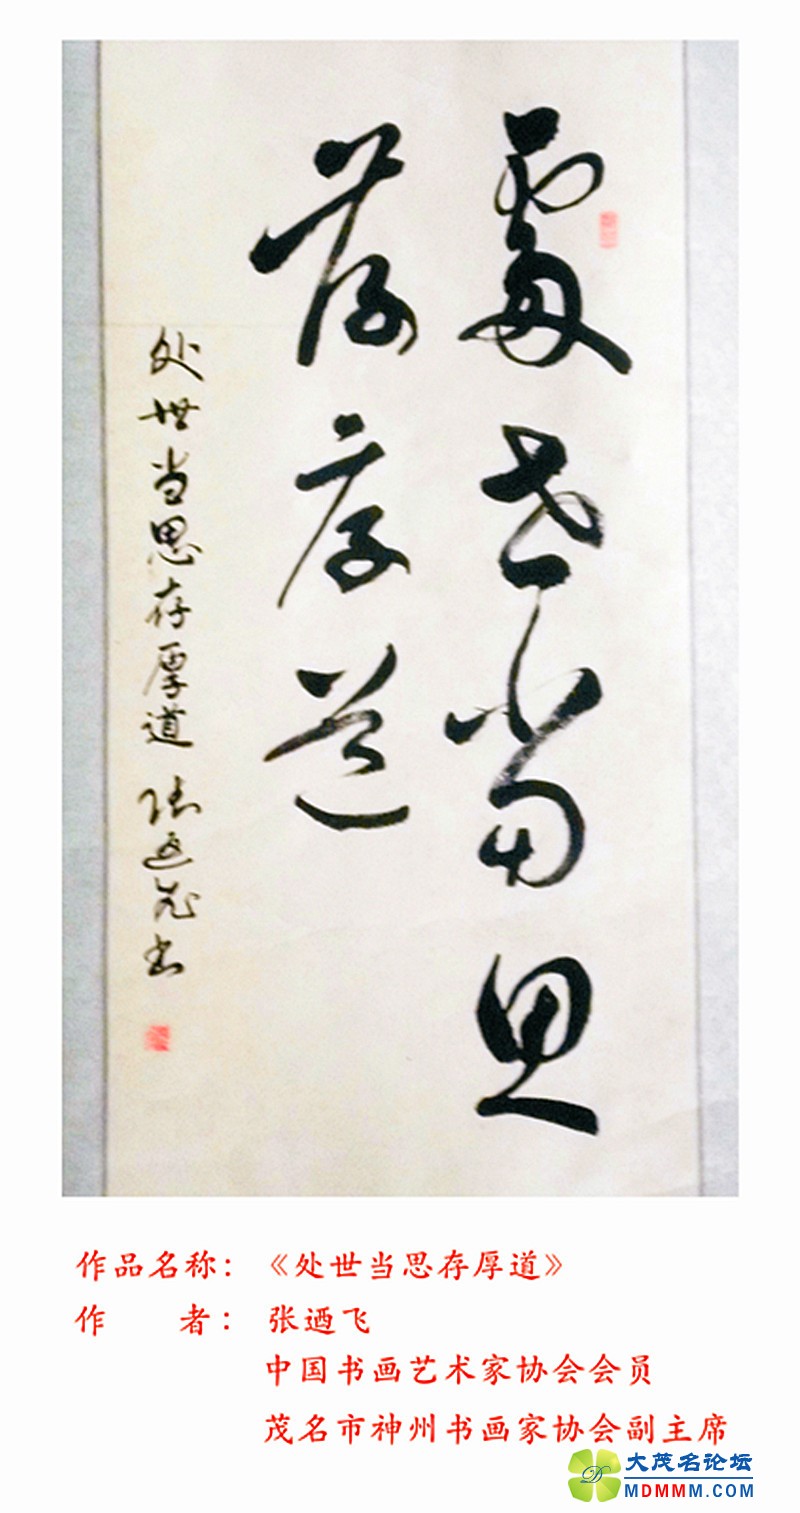 處世當思
存厚道
处世当思存厚道 张迺飞书
作品名称：《处世当思存厚道》
作 者：张迺飞
中国书画艺术家协会会员
茂名市神州书画家协会副主席
大茂名论坛
MDMMM.COM